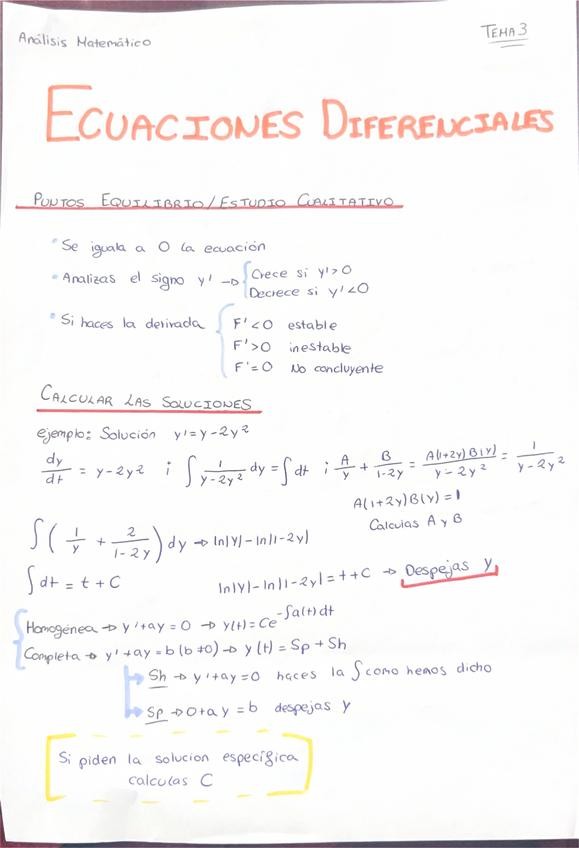 Análisis Matemático
TEMA 3
ECUACIONES DIFERENCIALES
PUNTOS EQUILIBRIO/ESTUDIO CUALITATIVO
• Se iguala a 0 la ecuación
• Analizas el signo y' → { Crece si y'>0
Decrece si y'<0
• Si haces la derivada { F'<0 estable
F'>0 inestable
F'=0 No concluyente
CALCULAR LAS SOLUCIONES
ejemplo: Solución y'=y-2y²
dy/dt = y-2y² ; ∫ 1/(y-2y²) dy = ∫dt ; A/y + B/(1-2y) = A(1+2y)B(y)/(y-2y²) = 1/(y-2y²)
A(1+2y)B(y)=1
Calculas A y B
∫(1/y + 2/(1-2y))dy → ln|y|-ln|1-2y|
∫dt = t + C
ln|y|-ln|1-2y|=t+C → Despejas y
Homogénea → y'+ay=0 → y(t)=Ce^(-∫a(t)dt)
Completa → y'+ay=b (b≠0) → y(t)=Sp+Sh
Sh → y'+ay=0 haces la ∫ como hemos dicho
Sp → 0+ay=b despejas y
Si piden la solucion específica
calculas C